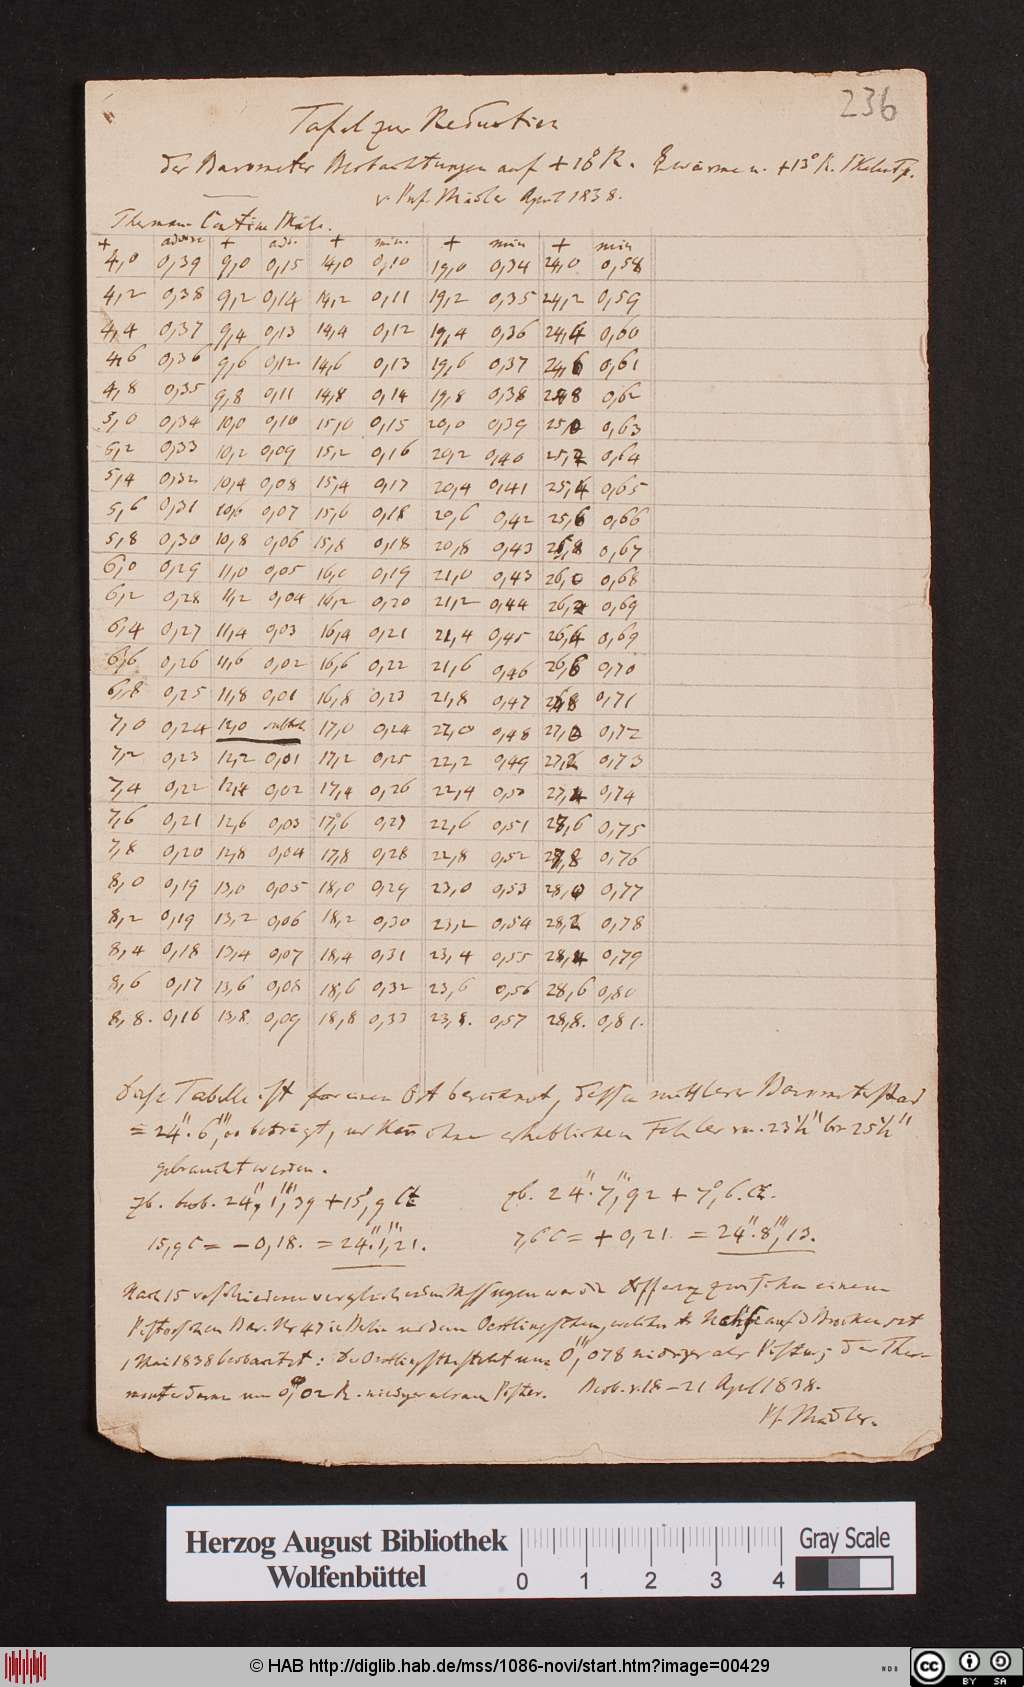 236
Tafel zur Reduction
der Barometer Beobachtungen auf + 10° R. wärme u. +13° R.
v. Prof. Mädler April 1838.
Thermom.
+ + + min. + min + min
4,0 0,39 9,0 0,15 14,0 0,10 19,0 0,34 24,0 0,58
4,2 0,38 9,2 0,14 14,2 0,11 19,2 0,35 24,2 0,59
4,4 0,37 9,4 0,13 14,4 0,12 19,4 0,36 24,4 0,60
4,6 0,36 9,6 0,12 14,6 0,13 19,6 0,37 24,6 0,61
4,8 0,35 9,8 0,11 14,8 0,14 19,8 0,38 24,8 0,62
5,0 0,34 10,0 0,10 15,0 0,15 20,0 0,39 25,0 0,63
5,2 0,33 10,2 0,09 15,2 0,16 20,2 0,40 25,2 0,64
5,4 0,32 10,4 0,08 15,4 0,17 20,4 0,41 25,4 0,65
5,6 0,31 10,6 0,07 15,6 0,18 20,6 0,42 25,6 0,66
5,8 0,30 10,8 0,06 15,8 0,18 20,8 0,43 25,8 0,67
6,0 0,29 11,0 0,05 16,0 0,19 21,0 0,43 26,0 0,68
6,2 0,28 11,2 0,04 16,2 0,20 21,2 0,44 26,2 0,69
6,4 0,27 11,4 0,03 16,4 0,21 21,4 0,45 26,4 0,69
6,6 0,26 11,6 0,02 16,6 0,22 21,6 0,46 26,6 0,70
6,8 0,25 11,8 0,01 16,8 0,23 21,8 0,47 26,8 0,71
7,0 0,24 12,0 17,0 0,24 22,0 0,48 27,0 0,72
7,2 0,23 12,2 0,01 17,2 0,25 22,2 0,49 27,2 0,73
7,4 0,22 12,4 0,02 17,4 0,26 22,4 0,50 27,4 0,74
7,6 0,21 12,6 0,03 17,6 0,27 22,6 0,51 27,6 0,75
7,8 0,20 12,8 0,04 17,8 0,28 22,8 0,52 27,8 0,76
8,0 0,19 13,0 0,05 18,0 0,29 23,0 0,53 28,0 0,77
8,2 0,19 13,2 0,06 18,2 0,30 23,2 0,54 28,2 0,78
8,4 0,18 13,4 0,07 18,4 0,31 23,4 0,55 28,4 0,79
8,6 0,17 13,6 0,08 18,6 0,32 23,6 0,56 28,6 0,80
8,8. 0,16 13,8 0,09 18,8 0,33 23,8. 0,57 28,8. 0,81.
Diese Tabelle ist für einen Ort berechnet, dessen mittlerer Barometerstand
= 24". 6''',00 beträgt, und kann ohne erheblichen Fehler von 23½" bis 25½"
gebraucht werden.
zb. beob. 24", 1''',39 + 15°,9 Ct
zb. 24". 7''',92 + 7°,6. Ct.
15,9 C = - 0,18. = 24". 1''',21.
7,6 C = + 0,21. = 24". 8''',13.
Nach 15 verschiedenen Messungen Differenz zwischen einem
Pistorschen Bar. Nr 47 in Berlin und dem auf d Brocken seit
1 Mai 1838 beobachtet: 0''',078 niedriger als Pistor; der Ther-
um 0°,02 R. niedriger als am Pistor. Beob. v. 18 - 21 April 1838.
Pf. Mädler.
Herzog August Bibliothek
Wolfenbüttel
0 1 2 3 4
Gray Scale
© HAB http://diglib.hab.de/mss/1086-novi/start.htm?image=00429
WDB
cc BY SA